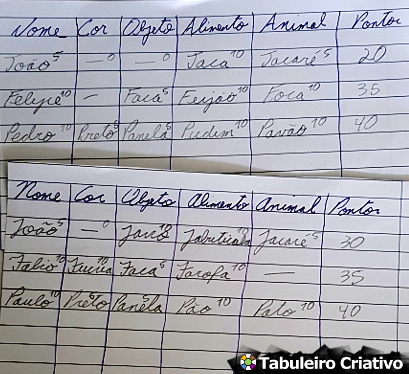 Nome Cor Objeto Alimento Animal Pontos
João 5 — 0 — 0 Jaca 10 Jacaré 5 20
Felipe 10 — Faca 5 Feijão 10 Foca 10 35
Pedro 10 Preto 5 Panela 5 Pudim 10 Pavão 10 40
Nome Cor Objeto Alimento Animal Pontos
João 5 — 0 Jarro 10 Jabuticaba 10 Jacaré 5 30
Fábio 10 Fúcsia 10 Faca 5 Farofa 10 — 35
Paulo 10 Preto 5 Panela 5 Pão 10 Pato 10 40
Tabuleiro Criativo